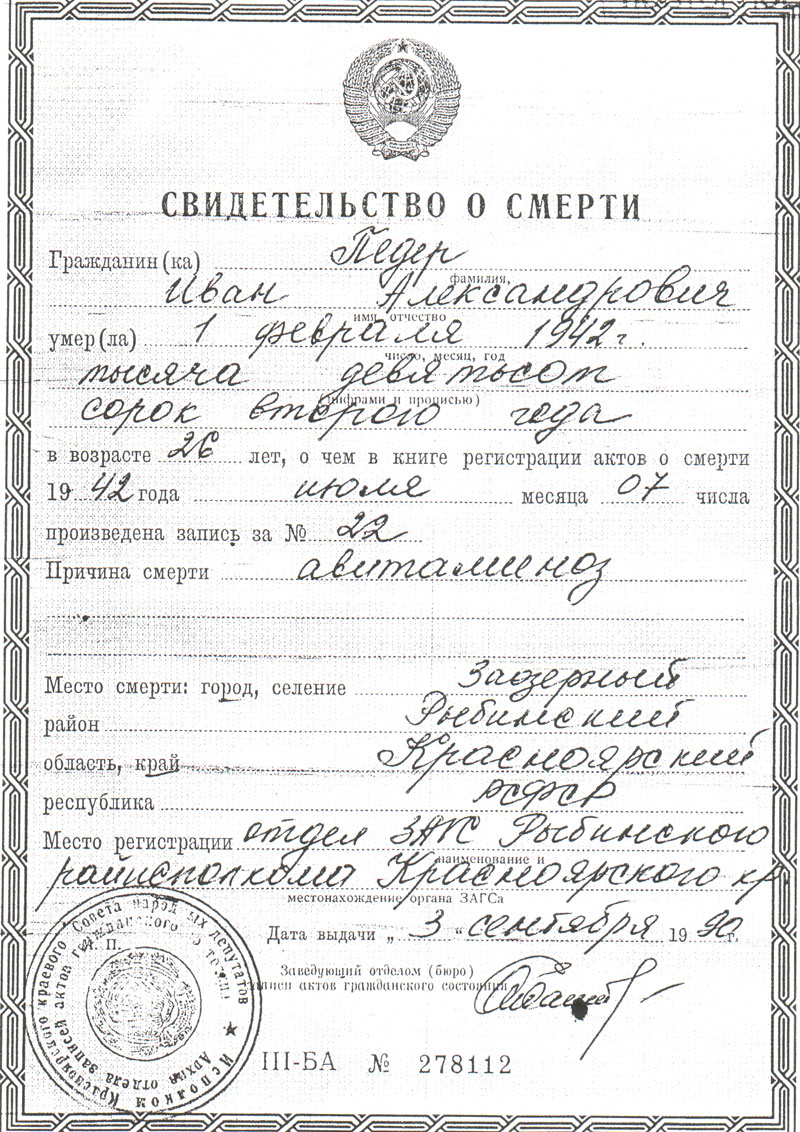 СВИДЕТЕЛЬСТВО О СМЕРТИ
Гражданин (ка) Педер
фамилия,
Иван Александрович
имя, отчество
умер (ла) 1 февраля 1942 г.
число, месяц, год
тысяча девятьсот
(цифрами и прописью)
сорок второго года
в возрасте 26 лет, о чем в книге регистрации актов о смерти
19 42 года июля месяца 07 числа
произведена запись за № 22
Причина смерти авитаминоз
Место смерти: город, селение Заозерный
район Рыбинский
область, край Красноярский
республика РСФСР
Место регистрации отдел ЗАГС Рыбинского
наименование и
райисполкома Красноярского кр.
местонахождение органа ЗАГСа
Дата выдачи „ 3 " сентября 19 90 г.
М. П.
Заведующий отделом (бюро)
записи актов гражданского состояния
Исполком Красноярского краевого Совета народных депутатов
Архив отдела записей актов гражданского состояния
III-БА № 278112